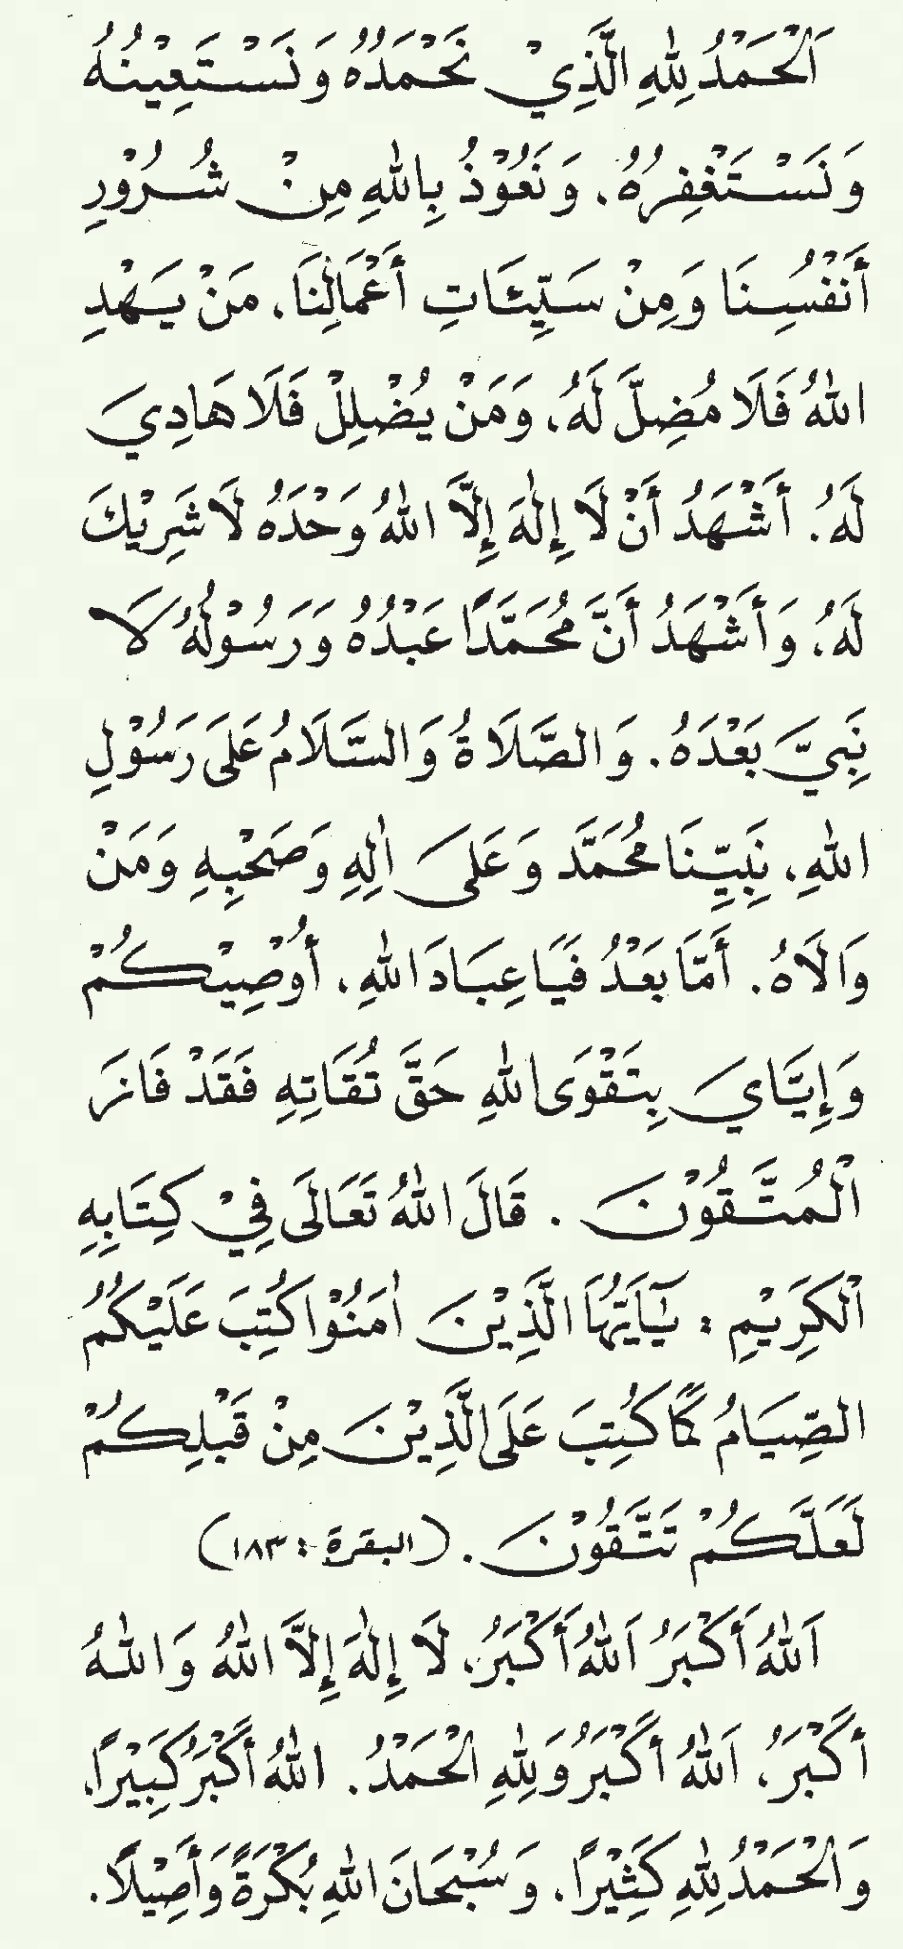 اَلْحَمْدُ لِلّٰهِ الَّذِيْ نَحْمَدُهُ وَنَسْتَعِيْنُهُ
وَنَسْتَغْفِرُهُ، وَنَعُوْذُ بِاللّٰهِ مِنْ شُرُوْرِ
أَنْفُسِنَا وَمِنْ سَيِّئَاتِ أَعْمَالِنَا، مَنْ يَهْدِ
اللّٰهُ فَلَا مُضِلَّ لَهُ، وَمَنْ يُضْلِلْ فَلَا هَادِيَ
لَهُ. أَشْهَدُ أَنْ لَا إِلٰهَ إِلَّا اللّٰهُ وَحْدَهُ لَا شَرِيْكَ
لَهُ، وَأَشْهَدُ أَنَّ مُحَمَّدًا عَبْدُهُ وَرَسُوْلُهُ لَا
نَبِيَّ بَعْدَهُ. وَالصَّلَاةُ وَالسَّلَامُ عَلَى رَسُوْلِ
اللّٰهِ، نَبِيِّنَا مُحَمَّد وَعَلَى اٰلِهِ وَصَحْبِهِ وَمَنْ
وَالَاهُ. أَمَّا بَعْدُ فَيَا عِبَادَ اللّٰهِ، أُوْصِيْكُمْ
وَإِيَّايَ بِتَقْوَى اللّٰهِ حَقَّ تُقَاتِهِ فَقَدْ فَازَ
الْمُتَّقُوْنَ. قَالَ اللّٰهُ تَعَالَى فِيْ كِتَابِهِ
الْكَرِيْمِ : يٰٓأَيُّهَا الَّذِيْنَ اٰمَنُوْا كُتِبَ عَلَيْكُمُ
الصِّيَامُ كَمَا كُتِبَ عَلَى الَّذِيْنَ مِنْ قَبْلِكُمْ
لَعَلَّكُمْ تَتَّقُوْنَ. (البقرة : ١٨٣)
اَللّٰهُ أَكْبَرُ اَللّٰهُ أَكْبَرُ، لَا إِلٰهَ إِلَّا اللّٰهُ وَاللّٰهُ
أَكْبَرُ، اَللّٰهُ أَكْبَرُ وَلِلّٰهِ الْحَمْدُ. اللّٰهُ أَكْبَرُ كَبِيْرًا،
وَالْحَمْدُ لِلّٰهِ كَثِيْرًا، وَسُبْحَانَ اللّٰهِ بُكْرَةً وَأَصِيْلًا.